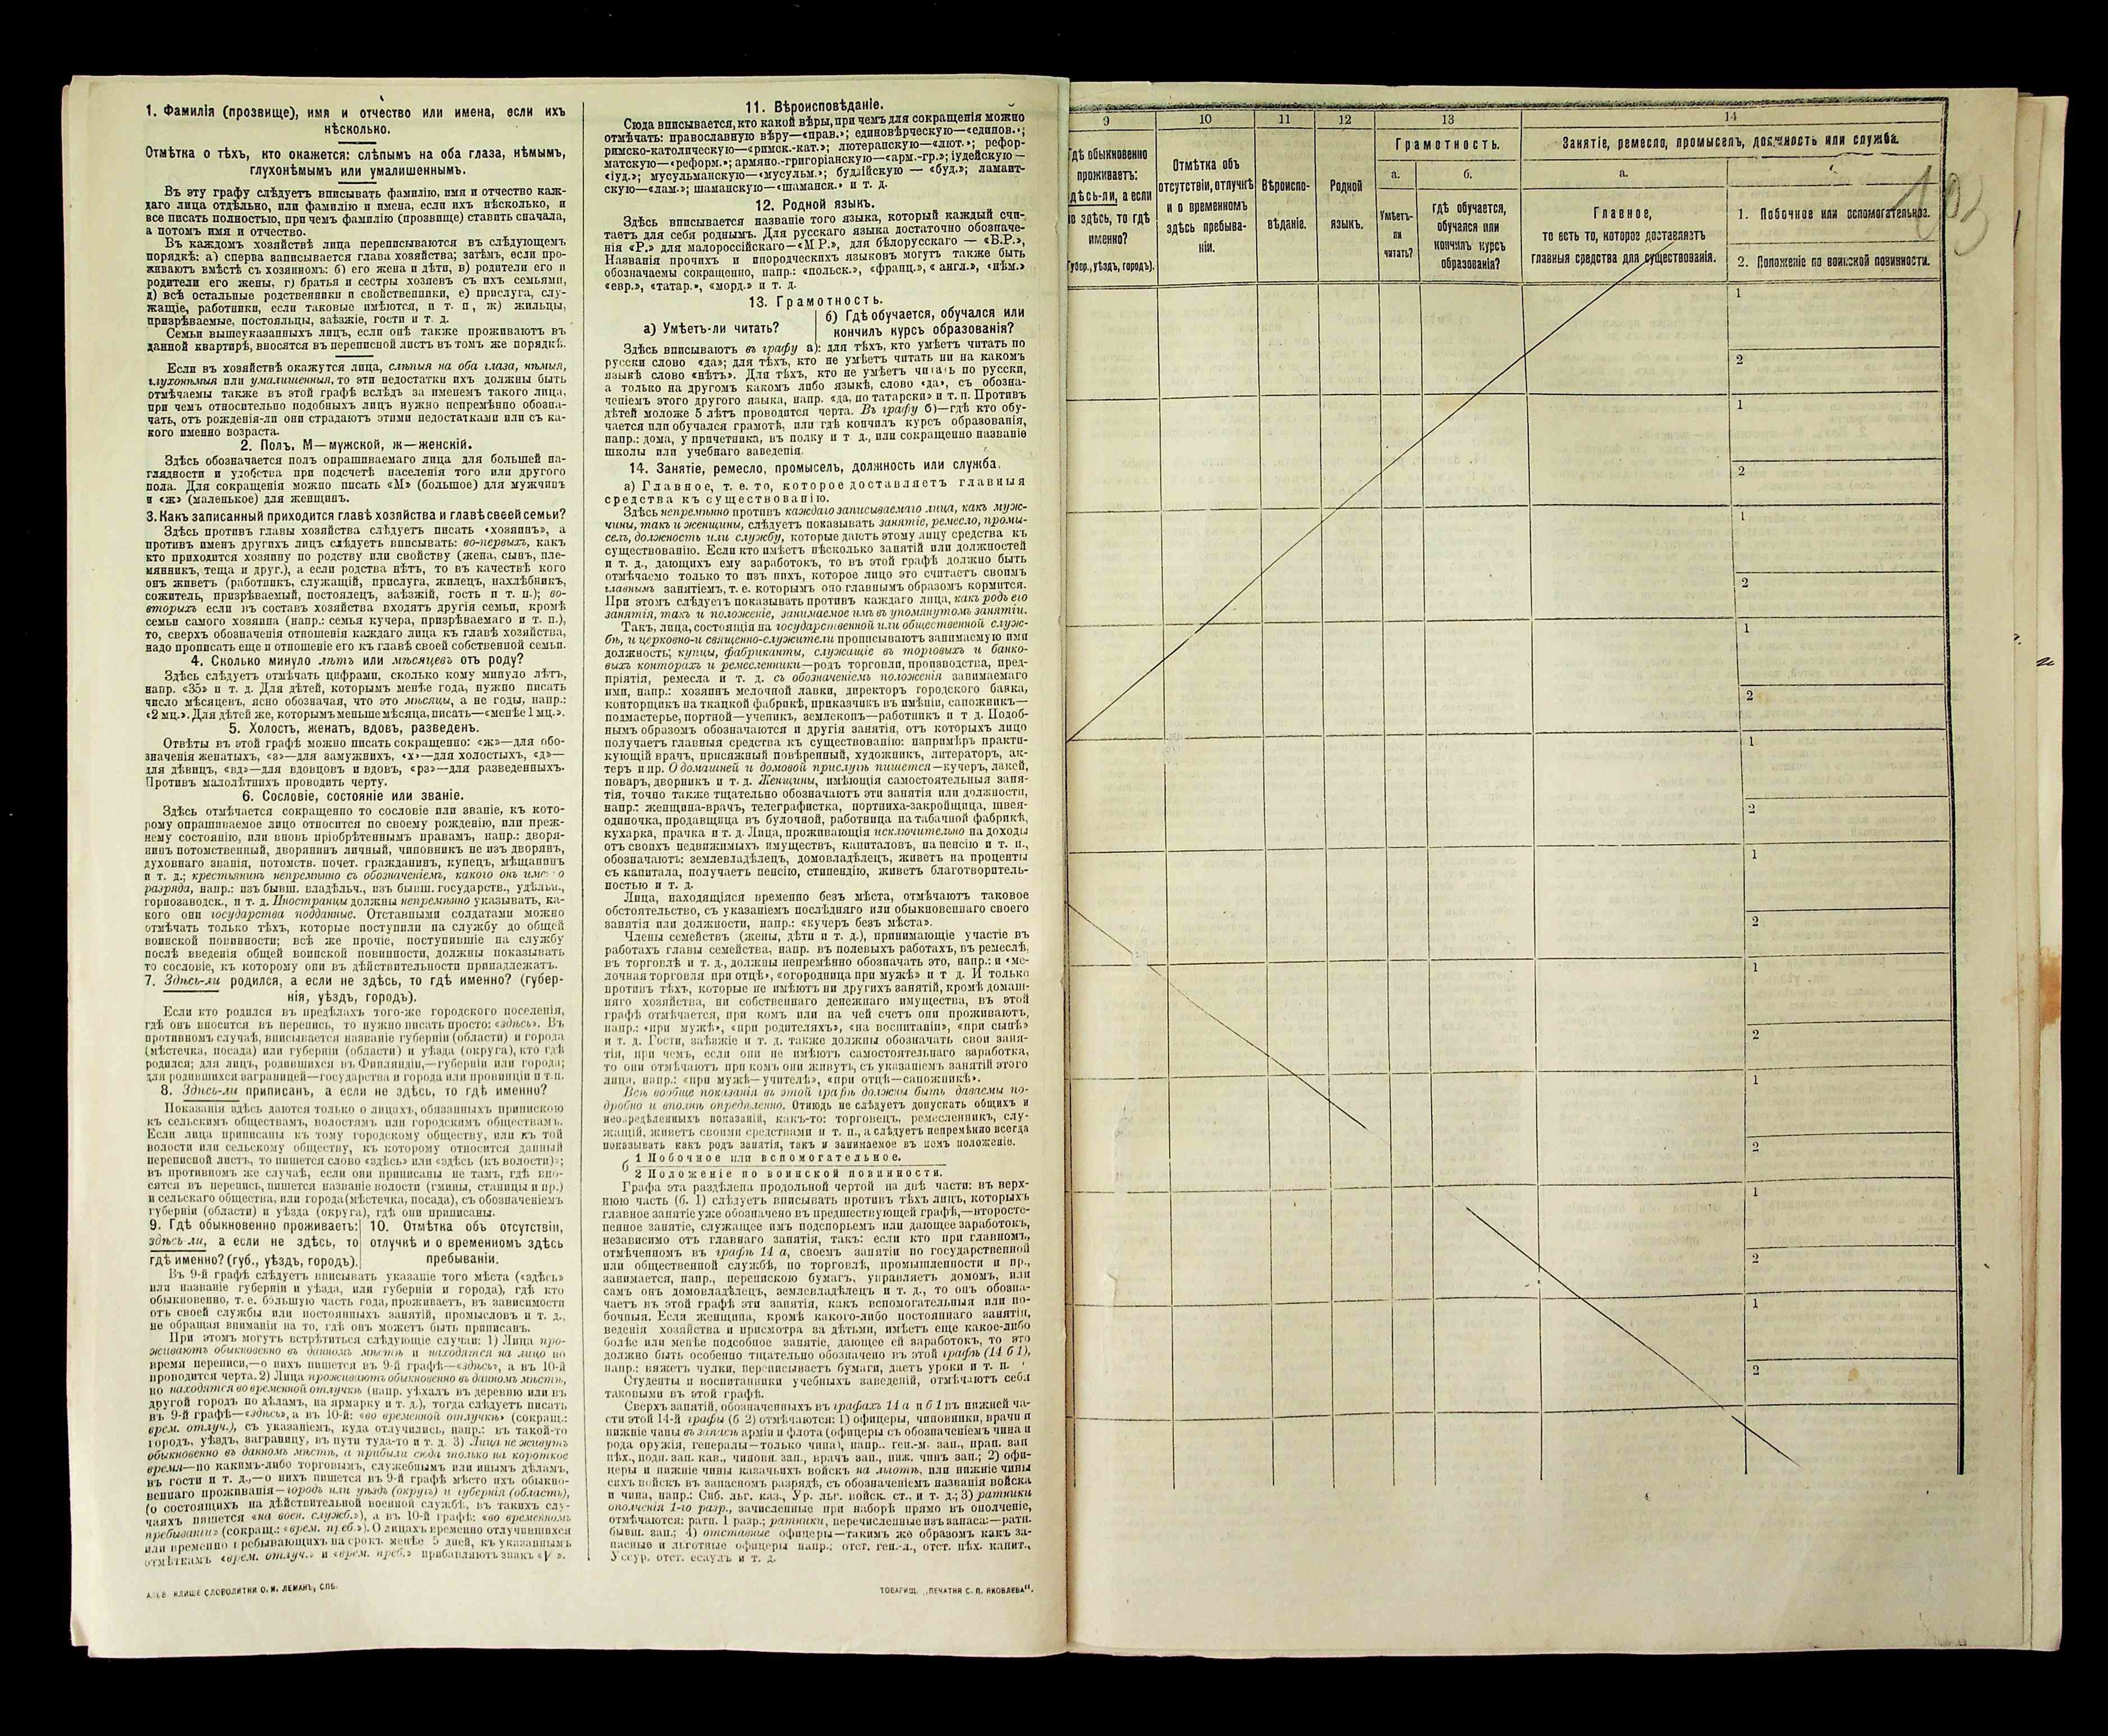 1. Фамилія (прозвище), имя и отчество или имена, если ихъ
нѣсколько.
Отмѣтка о тѣхъ, кто окажется: слѣпымъ на оба глаза, нѣмымъ,
глухонѣмымъ или умалишеннымъ.
Въ эту графу слѣдуетъ вписывать фамилію, имя и отчество каж-
даго лица отдѣльно, или фамилію и имена, если ихъ нѣсколько, и
все писать полностью, при чемъ фамилію (прозвище) ставить сначала,
а потомъ имя и отчество.
Въ каждомъ хозяйствѣ лица переписываются въ слѣдующемъ
порядкѣ: а) сперва записывается глава хозяйства; затѣмъ, если про-
живаютъ вмѣстѣ съ хозяиномъ: б) его жена и дѣти, в) родители его и
родители его жены, г) братья и сестры хозяевъ съ ихъ семьями,
д) всѣ остальные родственники и свойственники, е) прислуга, слу-
жащіе, работники, если таковые имѣются, и т. п., ж) жильцы,
призрѣваемые, постояльцы, заѣзжіе, гости и т. д.
Семьи вышеуказанныхъ лицъ, если онѣ также проживаютъ въ
данной квартирѣ, вносятся въ переписной листъ въ томъ же порядкѣ.
Если въ хозяйствѣ окажутся лица, слѣпыя на оба глаза, нѣмыя,
глухонѣмыя или умалишенныя, то эти недостатки ихъ должны быть
отмѣчаемы также въ этой графѣ вслѣдъ за именемъ такого лица,
при чемъ относительно подобныхъ лицъ нужно непремѣнно обозна-
чать, отъ рожденія-ли они страдаютъ этими недостатками или съ ка-
кого именно возраста.
2. Полъ, М—мужской, ж—женскій.
Здѣсь обозначается полъ опрашиваемаго лица для большей на-
глядности и удобства при подсчетѣ населенія того или другого
пола. Для сокращенія можно писать «М» (большое) для мужчинъ
и «ж» (маленькое) для женщинъ.
3. Какъ записанный приходится главѣ хозяйства и главѣ своей семьи?
Здѣсь противъ главы хозяйства слѣдуетъ писать «хозяинъ», а
противъ именъ другихъ лицъ слѣдуетъ вписывать: во-первыхъ, какъ
кто приходится хозяину по родству или свойству (жена, сынъ, пле-
мянникъ, теща и друг.), а если родства нѣтъ, то въ качествѣ кого
онъ живетъ (работникъ, служащій, прислуга, жилецъ, нахлѣбникъ,
сожитель, призрѣваемый, постоялецъ, заѣзжій, гость и т. п.); во-
вторыхъ если въ составъ хозяйства входятъ другія семьи, кромѣ
семьи самого хозяина (напр.: семья кучера, призрѣваемаго и т. п.),
то, сверхъ обозначенія отношенія каждаго лица къ главѣ хозяйства,
надо прописать еще и отношеніе его къ главѣ своей собственной семьи.
4. Сколько минуло лѣтъ или мѣсяцевъ отъ роду?
Здѣсь слѣдуетъ отмѣчать цифрами, сколько кому минуло лѣтъ,
напр. «35» и т. д. Для дѣтей, которымъ менѣе года, нужно писать
число мѣсяцевъ, ясно обозначая, что это мѣсяцы, а не годы, напр.:
«2 мц.». Для дѣтей же, которымъ меньше мѣсяца, писать—«менѣе 1 мц.».
5. Холостъ, женатъ, вдовъ, разведенъ.
Отвѣты въ этой графѣ можно писать сокращенно: «ж»—для обо-
значенія женатыхъ, «з»—для замужнихъ, «х»—для холостыхъ, «д»—
для дѣвицъ, «вд»—для вдовцовъ и вдовъ, «рз»—для разведенныхъ.
Противъ малолѣтнихъ проводить черту.
6. Сословіе, состояніе или званіе.
Здѣсь отмѣчается сокращенно то сословіе или званіе, къ кото-
рому опрашиваемое лицо относится по своему рожденію, или преж-
нему состоянію, или вновь пріобрѣтеннымъ правамъ, напр.: дворя-
нинъ потомственный, дворянинъ личный, чиновникъ не изъ дворянъ,
духовнаго званія, потомств. почет. гражданинъ, купецъ, мѣщанинъ
и т. д.; крестьянинъ непремѣнно съ обозначеніемъ, какого онъ имен-о
разряда, напр.: изъ бывш. владѣльч., изъ бывш. государств., удѣльн.,
горнозаводск., и т. д. Иностранцы должны непремѣнно указывать, ка-
кого они государства подданные. Отставными солдатами можно
отмѣчать только тѣхъ, которые поступили на службу до общей
воинской повинности; всѣ же прочіе, поступившіе на службу
послѣ введенія общей воинской повинности, должны показывать
то сословіе, къ которому они въ дѣйствительности принадлежатъ.
7. Здѣсь-ли родился, а если не здѣсь, то гдѣ именно? (губер-
нія, уѣздъ, городъ).
Если кто родился въ предѣлахъ того-же городского поселенія,
гдѣ онъ вносится въ перепись, то нужно писать просто: «здѣсь». Въ
противномъ случаѣ, вписывается названіе губерніи (области) и города
(мѣстечка, посада) или губерніи (области) и уѣзда (округа), кто гдѣ
родился; для лицъ, родившихся въ Финляндіи,—губерніи или города;
для родившихся заграницей—государства и города или провинціи и т.п.
8. Здѣсь-ли приписанъ, а если не здѣсь, то гдѣ именно?
Показанія здѣсь даются только о лицахъ, обязанныхъ припискою
къ сельскимъ обществамъ, волостямъ или городскимъ обществамъ.
Если лица приписаны къ тому городскому обществу, или къ той
волости или сельскому обществу, къ которому относится данный
переписной листъ, то пишется слово «здѣсь» или «здѣсь (къ волости)»;
въ противномъ же случаѣ, если они приписаны не тамъ, гдѣ вно-
сятся въ перепись, пишется названіе волости (гмины, станицы и пр.)
и сельскаго общества, или города (мѣстечка, посада), съ обозначеніемъ
губерніи (области) и уѣзда (округа), гдѣ они приписаны.
9. Гдѣ обыкновенно проживаетъ:
здѣсь ли, а если не здѣсь, то
гдѣ именно? (губ., уѣздъ, городъ).
10. Отмѣтка объ отсутствіи,
отлучкѣ и о временномъ здѣсь
пребываніи.
Въ 9-й графѣ слѣдуетъ вписывать указаніе того мѣста («здѣсь»
или названіе губерніи и уѣзда, или губерніи и города), гдѣ кто
обыкновенно, т. е. бо́льшую часть года, проживаетъ, въ зависимости
отъ своей службы или постоянныхъ занятій, промысловъ и т. д.,
не обращая вниманія на то, гдѣ онъ можетъ быть приписанъ.
При этомъ могутъ встрѣтиться слѣдующіе случаи: 1) Лица про-
живаютъ обыкновенно въ данномъ мѣстѣ и находятся на лицо во
время переписи,—о нихъ пишется въ 9-й графѣ—«здѣсь», а въ 10-й
проводится черта. 2) Лица проживаютъ обыкновенно въ данномъ мѣстѣ,
но находятся во временной отлучкѣ (напр. уѣхалъ въ деревню или въ
другой городъ по дѣламъ, на ярмарку и т. д.), тогда слѣдуетъ писать
въ 9-й графѣ—«здѣсь», а въ 10-й: «во временной отлучкѣ» (сокращ.:
врем. отлуч.), съ указаніемъ, куда отлучились, напр.: въ такой-то
городъ, уѣздъ, заграницу, въ пути туда-то и т. д. 3) Лица не живутъ
обыкновенно въ данномъ мѣстѣ, а прибыли сюда только на короткое
время—по какимъ-либо торговымъ, служебнымъ или инымъ дѣламъ,
въ гости и т. д.,—о нихъ пишется въ 9-й графѣ мѣсто ихъ обыкно-
веннаго проживанія—городъ или уѣздъ (округъ) и губернія (область),
(о состоящихъ на дѣйствительной военной службѣ, въ такихъ слу-
чаяхъ пишется «на воен. служб.»), а въ 10-й графѣ: «во временномъ
пребываніи» (сокращ.: «врем. преб.»). О лицахъ временно отлучившихся
или временно пребывающихъ на срокъ менѣе 5 дней, къ указаннымъ
отмѣткамъ «врем. отлуч.» и «врем. преб.» прибавляютъ знакъ «V».
КЛИШЕ СЛОВОЛИТНИ О. И. ЛЕМАНЪ, СПБ.
11. Вѣроисповѣданіе.
Сюда вписывается, кто какой вѣры, при чемъ для сокращенія можно
отмѣчать: православную вѣру—«прав.»; единовѣрческую—«единов.»;
римско-католическую—«римск.-кат.»; лютеранскую—«лют.»; рефор-
матскую—«реформ.»; армяно.-григоріанскую—«арм.-гр.»; іудейскую—
«іуд.»; мусульманскую—«мусульм.»; буддійскую — «буд.»; ламаит-
скую—«лам.»; шаманскую—«шаманск.» и т. д.
12. Родной языкъ.
Здѣсь вписывается названіе того языка, который каждый счи-
таетъ для себя роднымъ. Для русскаго языка достаточно обозначе-
нія «Р.» для малороссійскаго—«М.Р.», для бѣлорусскаго — «Б.Р.»,
Названія прочихъ и инородческихъ языковъ могутъ также быть
обозначаемы сокращенно, напр.: «польск.», «франц.», «англ.», «нѣм.»
«евр.», «татар.», «морд.» и т. д.
13. Грамотность.
а) Умѣетъ-ли читать?
б) Гдѣ обучается, обучался или
кончилъ курсъ образованія?
Здѣсь вписываютъ въ графу а): для тѣхъ, кто умѣетъ читать по
русски слово «да»; для тѣхъ, кто не умѣетъ читать ни на какомъ
языкѣ слово «нѣтъ». Для тѣхъ, кто не умѣетъ читать по русски,
а только на другомъ какомъ либо языкѣ, слово «да», съ обозна-
ченіемъ этого другого языка, напр. «да, по татарски» и т. п. Противъ
дѣтей моложе 5 лѣтъ проводится черта. Въ графу б)—гдѣ кто обу-
чается или обучался грамотѣ, или гдѣ кончилъ курсъ образованія,
напр.: дома, у причетника, въ полку и т. д., или сокращенно названіе
школы или учебнаго заведенія.
14. Занятіе, ремесло, промыселъ, должность или служба.
а) Главное, т. е. то, которое доставляетъ главныя
средства къ существованію.
Здѣсь непремѣнно противъ каждаго записываемаго лица, какъ муж-
чины, такъ и женщины, слѣдуетъ показывать занятіе, ремесло, промы-
селъ, должность или службу, которые даютъ этому лицу средства къ
существованію. Если кто имѣетъ нѣсколько занятій или должностей
и т. д., дающихъ ему заработокъ, то въ этой графѣ должно быть
отмѣчаемо только то изъ нихъ, которое лицо это считаетъ своимъ
главнымъ занятіемъ, т. е. которымъ оно главнымъ образомъ кормится.
При этомъ слѣдуетъ показывать противъ каждаго лица, какъ родъ его
занятія, такъ и положеніе, занимаемое имъ въ упомянутомъ занятіи.
Такъ, лица, состоящія на государственной или общественной служ-
бѣ, и церковно-и священно-служители прописываютъ занимаемую ими
должность; купцы, фабриканты, служащіе въ торговыхъ и банко-
выхъ конторахъ и ремесленники—родъ торговли, производства, пред-
пріятія, ремесла и т. д. съ обозначеніемъ положенія занимаемаго
ими, напр.: хозяинъ мелочной лавки, директоръ городского банка,
конторщикъ на ткацкой фабрикѣ, приказчикъ въ имѣніи, сапожникъ—
подмастерье, портной—ученикъ, землекопъ—работникъ и т. д. Подоб-
нымъ образомъ обозначаются и другія занятія, отъ которыхъ лицо
получаетъ главныя средства къ существованію: напримѣръ практи-
кующій врачъ, присяжный повѣренный, художникъ, литераторъ, ак-
теръ и пр. О домашней и домовой прислугѣ пишется—кучеръ, лакей,
поваръ, дворникъ и т. д. Женщины, имѣющія самостоятельныя заня-
тія, точно также тщательно обозначаютъ эти занятія или должности,
напр.: женщина-врачъ, телеграфистка, портниха-закройщица, швея-
одиночка, продавщица въ булочной, работница на табачной фабрикѣ,
кухарка, прачка и т. д. Лица, проживающія исключительно на доходы
отъ своихъ недвижимыхъ имуществъ, капиталовъ, на пенсію и т. п.,
обозначаютъ: землевладѣлецъ, домовладѣлецъ, живетъ на проценты
съ капитала, получаетъ пенсію, стипендію, живетъ благотворитель-
ностью и т. д.
Лица, находящіяся временно безъ мѣста, отмѣчаютъ таковое
обстоятельство, съ указаніемъ послѣдняго или обыкновеннаго своего
занятія или должности, напр.: «кучеръ безъ мѣста».
Члены семействъ (жены, дѣти и т. д.), принимающіе участіе въ
работахъ главы семейства, напр. въ полевыхъ работахъ, въ ремеслѣ,
въ торговлѣ и т. д., должны непремѣнно обозначать это, напр.: и «ме-
лочная торговля при отцѣ», «огородница при мужѣ» и т. д. И только
противъ тѣхъ, которые не имѣютъ ни другихъ занятій, кромѣ домаш-
няго хозяйства, ни собственнаго денежнаго имущества, въ этой
графѣ отмѣчается, при комъ или на чей счетъ они проживаютъ,
напр.: «при мужѣ», «при родителяхъ», «на воспитаніи», «при сынѣ»
и т. д. Гости, заѣзжіе и т. д. также должны обозначать свои заня-
тія, при чемъ, если они не имѣютъ самостоятельнаго заработка,
то они отмѣчаютъ при комъ они живутъ, съ указаніемъ занятій этого
лица, напр.: «при мужѣ—учителѣ», «при отцѣ—сапожникѣ».
Всѣ вообще показанія въ этой графѣ должны быть даваемы по-
дробно и вполнѣ опредѣленно. Отнюдь не слѣдуетъ допускать общихъ и
неопредѣленныхъ показаній, какъ-то: торговецъ, ремесленникъ, слу-
жащій, живетъ своими средствами и т. п., а слѣдуетъ непремѣнно всегда
показывать какъ родъ занятія, такъ и занимаемое въ немъ положеніе.
б 1 Побочное или вспомогательное.
2 Положеніе по воинской повинности.
Графа эта раздѣлена продольной чертой на двѣ части: въ верх-
нюю часть (б. 1) слѣдуетъ вписывать противъ тѣхъ лицъ, которыхъ
главное занятіе уже обозначено въ предшествующей графѣ,—второсте-
пенное занятіе, служащее имъ подспорьемъ или дающее заработокъ,
независимо отъ главнаго занятія, такъ: если кто при главномъ,
отмѣченномъ въ графѣ 14 а, своемъ занятіи по государственной
или общественной службѣ, по торговлѣ, промышленности и пр.,
занимается, напр., перепискою бумагъ, управляетъ домомъ, или
самъ онъ домовладѣлецъ, землевладѣлецъ и т. д., то онъ обозна-
чаетъ въ этой графѣ эти занятія, какъ вспомогательныя или по-
бочныя. Если женщина, кромѣ какого-либо постояннаго занятія,
веденія хозяйства и присмотра за дѣтьми, имѣетъ еще какое-либо
болѣе или менѣе подсобное занятіе, дающее ей заработокъ, то это
должно быть особенно тщательно обозначено въ этой графѣ (14 б 1),
напр.: вяжетъ чулки, переписываетъ бумаги, даетъ уроки и т. п.
Студенты и воспитанники учебныхъ заведеній, отмѣчаютъ себя
таковыми въ этой графѣ.
Сверхъ занятій, обозначенныхъ въ графахъ 14 а и б 1 въ нижней ча-
сти этой 14-й графы (б 2) отмѣчаются: 1) офицеры, чиновники, врачи и
нижніе чины въ запасѣ арміи и флота (офицеры съ обозначеніемъ чина и
рода оружія, генералы—только чина), напр.. ген.-м. зап., прап. зап
пѣх., подп. зап. кав., чиновн. зап., врачъ зап., ниж. чинъ зап.; 2) офи-
церы и нижніе чины казачьихъ войскъ на льготѣ, или нижніе чины
сихъ войскъ въ запасномъ разрядѣ, съ обозначеніемъ названія войска
и чина, напр.: Сиб. льг. каз., Ур. льг. войск. ст., и т. д.; 3) ратники
ополченія 1-го разр., зачисленные при наборѣ прямо въ ополченіе,
отмѣчаются: ратн. 1 разр.; ратники, перечисленные изъ запаса:—ратн.
бывш. зап.; 4) отставные офицеры—такимъ же образомъ какъ за-
пасные и льготные офицеры напр.: отст. ген.-л., отст. пѣх. капит.,
Уссур. отст. есаулъ и т. д.
ТОВАРИЩ. „ПЕЧАТНЯ С. П. ЯКОВЛЕВА“.
9 10 11 12 13 14
Гдѣ обыкновенно
проживаетъ:
здѣсь-ли, а если
не здѣсь, то гдѣ
именно?
(Губер., уѣздъ, городъ).
Отмѣтка объ
отсутствіи, отлучкѣ
и о временномъ
здѣсь пребыва-
ніи.
Вѣроиспо-
вѣданіе.
Родной
языкъ.
Грамотность.
а.
Умѣетъ-
ли
читать?
б.
гдѣ обучается,
обучался или
кончилъ курсъ
образованія?
Занятіе, ремесло, промыселъ, должность или служба.
а.
Главное,
то есть то, которое доставляетъ
главныя средства для существованія.
1. Побочное или вспомогательное.
2. Положеніе по воинской повинности.
1
2
1
2
1
2
1
2
1
2
1
2
1
2
1
2
1
2
1
2